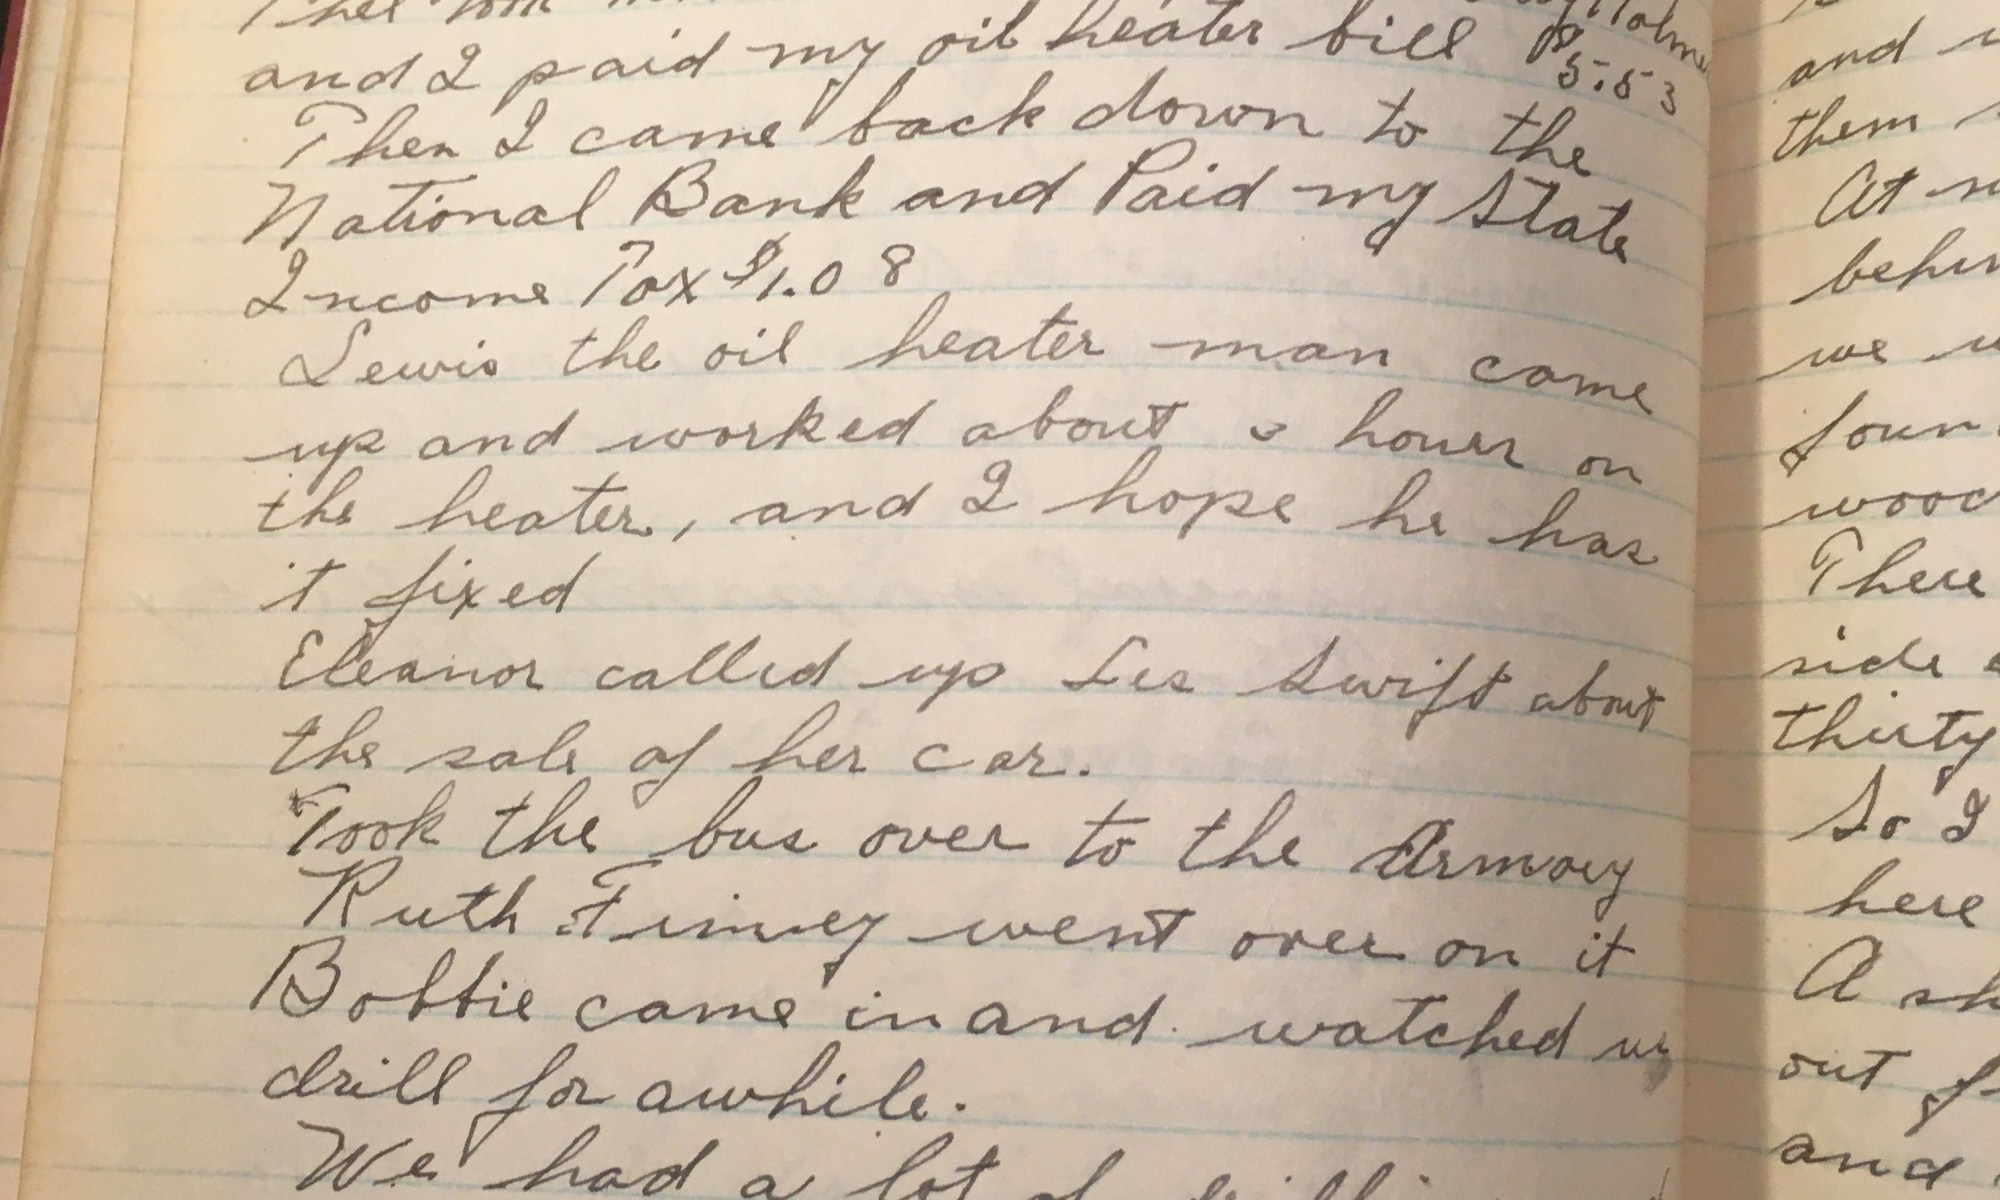 and I paid my oil heater bill $5.53
Then I came back down to the
National Bank and Paid my State
Income Tax $1.08
Lewis the oil heater man came
up and worked about hour on
the heater, and I hope he has
it fixed
Eleanor called up Les Swift about
the sale of her car.
Took the bus over to the Armory
Ruth Finney went over on it
Bobbie came in and watched us
drill for awhile.
We had a lot of
and
them
At
behin
we
foun
wood
There
side
thirty
So I
here
A sh
out
and